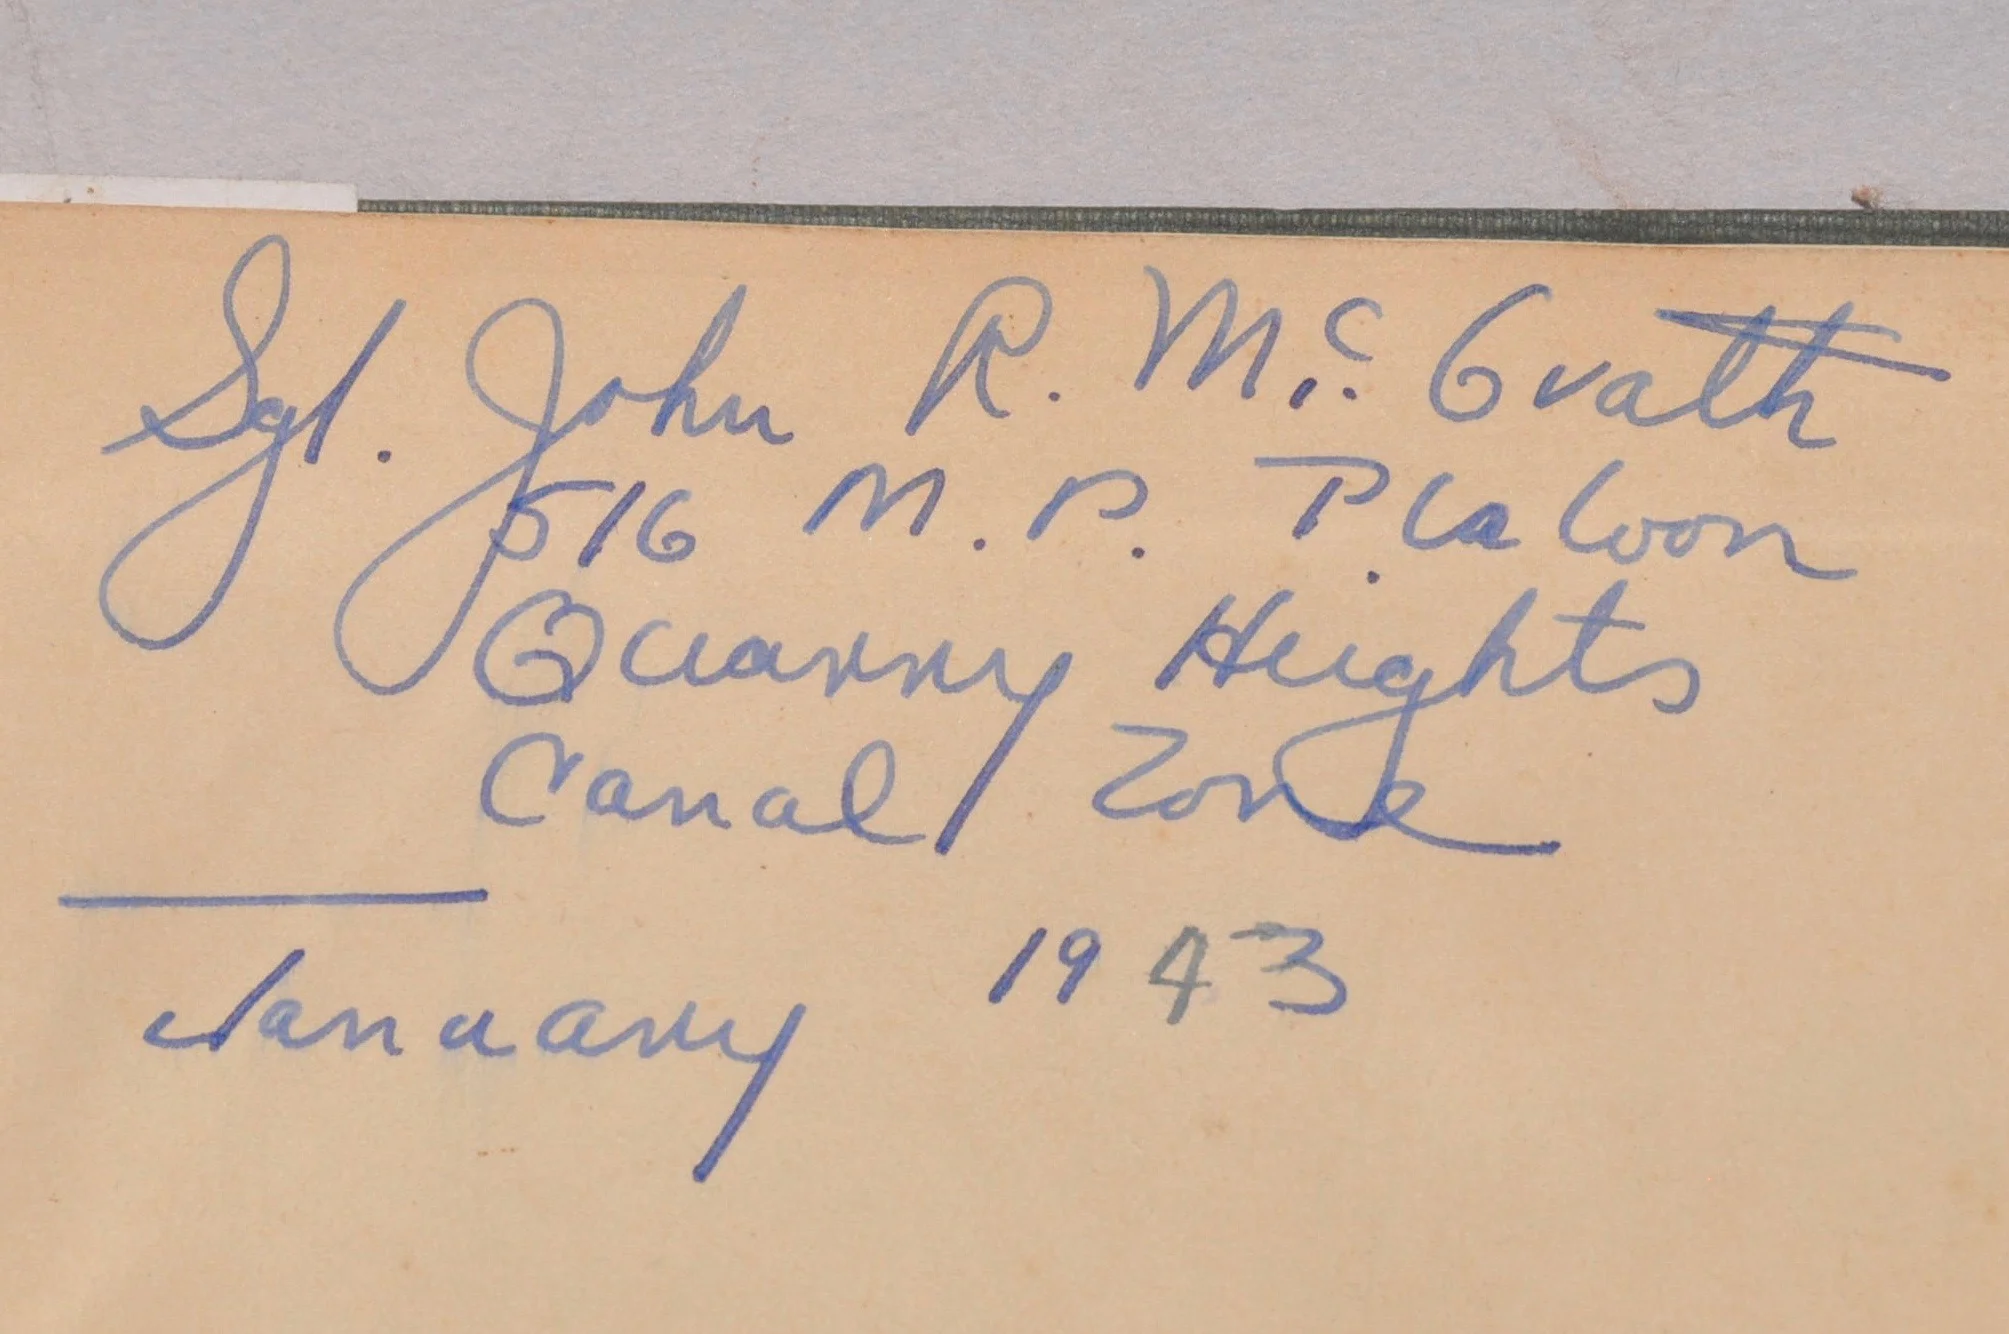 Sgt. John R. Mc. Grath
516 M.P. Platoon
Quarry Heights
Canal Zone
January 1943